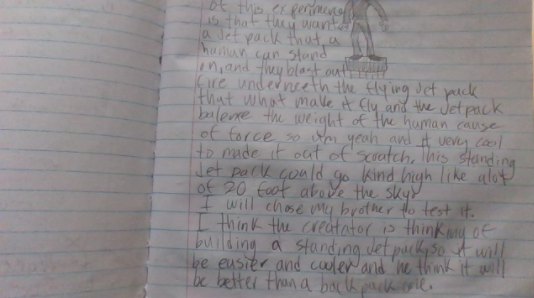 of this experiment
is that they want
a Jet pack that, a
human can stand
in, and they blast out
fire underneeth the flying Jet pack
that what make it fly and the Jetpack
balence the weight of the human cause
of force so um yeah and it very cool
to made it out of scratch, this standing
Jet pack could go kind high like alot
of 20 foot above the sky
I will chose my brother to test it.
I think the creatnator is thinking of
building a standing Jetpack, so it will
be easier and cooler and he think it will
be better than a back pack one.